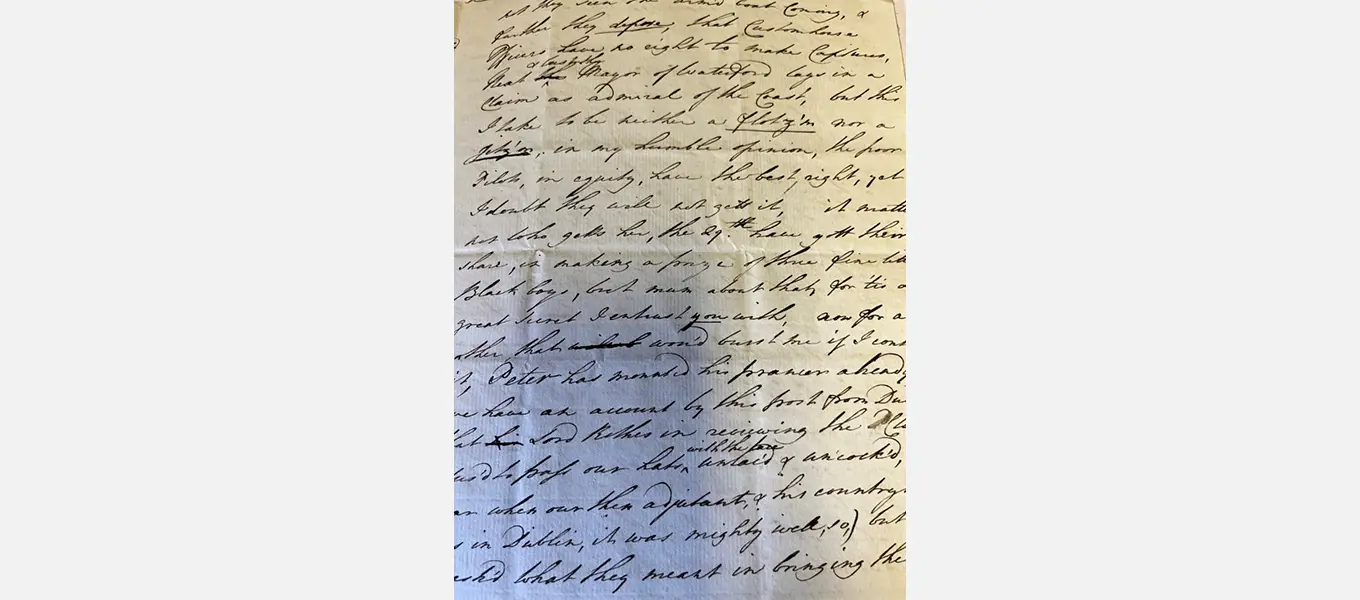 as they seen the arm'd boat coming, &
farther they depose, that Customhouse
Officers have no right to make Captures,
Neat the & worshipfull Mayor of Waterford lays in a
Claim as admiral of the Coast, but this
I take to be neither a flotz'm nor a
jetz'm, in my humble opinion, the poor
Pilots, in equity, have the best right, yet
I doubt they will not gett it, it matte
not who getts her, the 29.th have gott their
share, in making a prize of three fine litt
Black boys, but mum about that, for 'tis a
great secret I entrust you with, now for a
other, that wou'd burst me if I con
it, Peter has mounted his prancer already
we have an account by this post from Du
that Lord Rothes in reviewing the
us'd to pass our hats with the lace unlac'd & uncock'd,
when our then adjutant, & his country
s in Dublin, it was mighty well, so) but
ask'd what they meant in bringing the